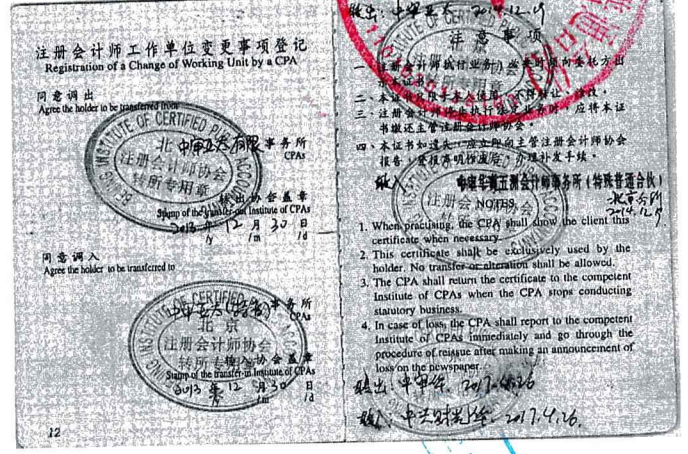 注册会计师工作单位变更事项登记
Registration of a Change of Working Unit by a CPA
同意调出
Agree the holder to be transferred from
事务所
CPAs
BEIJING INSTITUTE OF CERTIFIED PUBLIC ACCOUNTANTS
北京
注册会计师协会
转所专用章
转出协会盖章
Stamp of the transfer-out Institute of CPAs
2013年12月30日
/y /m /d
同意调入
Agree the holder to be transferred to
事务所
CPAs
北京
注册会计师协会
转所专用章
转入协会盖章
Stamp of the transfer-in Institute of CPAs
2013年12月30日
/y /m /d
12
转出: 中审亚太 2014.12.19
注意事项
一、注册会计师执行业务,必要时须向委托方出
二、本证书只限于本人使用,不得转让、涂改。
三、注册会计师停止执行法定业务时,应将本证
书缴还主管注册会计师协会。
四、本证书如遗失,应立即向主管注册会计师协会
报告,登报声明作废后,办理补发手续。
转入
中审华寅五洲会计师事务所(特殊普通合伙)
北京分所
2014.12.19
NOTES
1. When practising, the CPA shall show the client this
certificate when necessary.
2. This certificate shall be exclusively used by the
holder. No transfer or alteration shall be allowed.
3. The CPA shall return the certificate to the competent
Institute of CPAs when the CPA stops conducting
statutory business.
4. In case of loss, the CPA shall report to the competent
Institute of CPAs immediately and go through the
procedure of reissue after making an announcement of
loss on the newspaper.
转出: 中审华 2017.4.26
转入: 中兴财光华 2017.4.26.